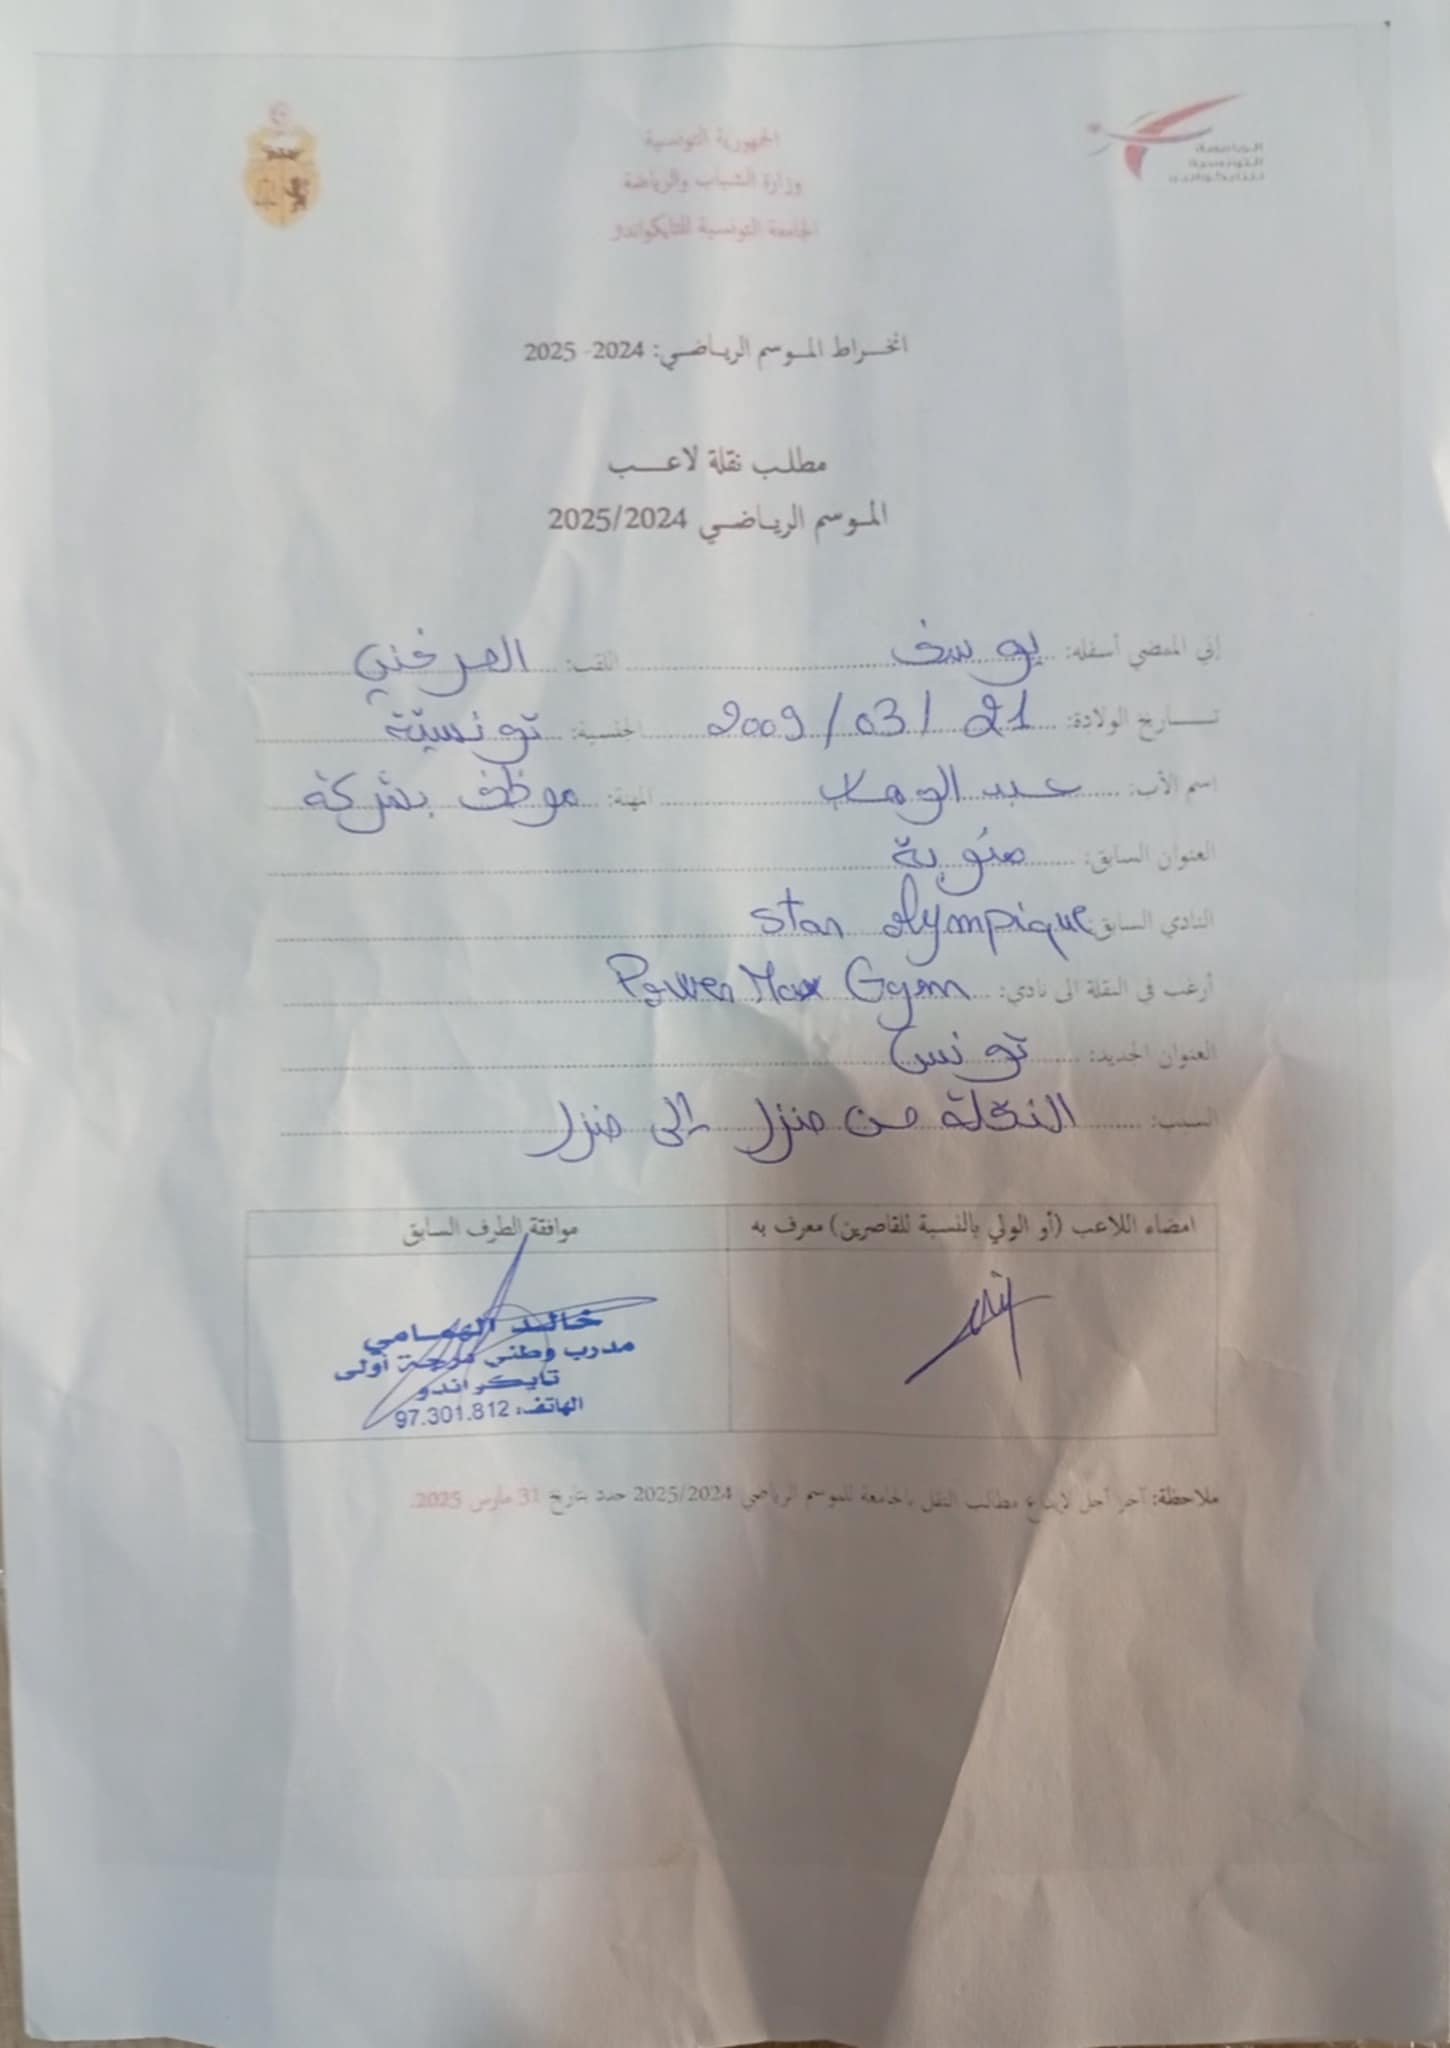 الجمهورية التونسية
وزارة الشباب والرياضة
الجامعة التونسية للتايكواندو
الجامعة
التونسية
للتايكواندو
انخراط الموسم الرياضي: 2024- 2025
مطلب نقلة لاعب
الموسم الرياضي 2025/2024
إني الممضي أسفله: يوسف اللقب: العرفني
تاريخ الولادة: 21 /03/ 2009 الجنسية: تونسيّة
اسم الأب: عبد الوهاب المهنة: موظف بشركة
العنوان السابق: منّوبة
النادي السابق: star olympique
أرغب في النقلة الى نادي: Power Max Gym
العنوان الجديد: تونس
السبب: النقلة من منزل إلى منزل
امضاء اللاعب (أو الولي بالنسبة للقاصرين) معرف به موافقة الطرف السابق
خالد الهمامي
مدرب وطني درجة أولى
تايكواندو
الهاتف: 97.301.812
ملاحظة: آخر أجل لإيداع مطالب النقل بالجامعة للموسم الرياضي 2025/2024 حدد بتاريخ 31 مارس 2025.